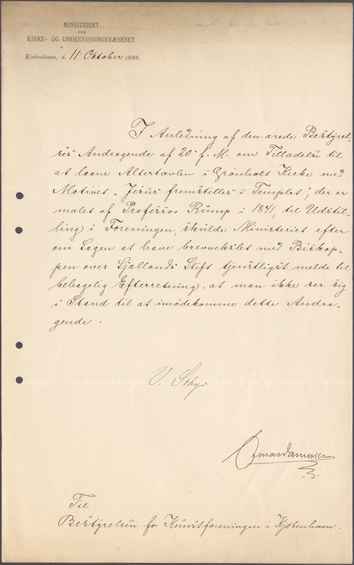 MINISTERIET
FOR
KIRKE- OG UNDERVISNINGSVÆSENET.
Kjøbenhavn, d. 11 Oktober
I Anledning af den ærede Bestyrel-
ses Andragende af 20 f. M. om Tilladelse til
at laane Altertavlen i Grønholt Kirke med
Motivet "Jesus fremstilles i Templet", der er
malet af Professor Rump i 1841, til Udstil-
ling i Foreningen, skulde Ministeriet efter
om Sagen at have brevvexlet med Biskop-
pen over Sjællands Stift tjenstligst melde til
behagelig Efterretning, at man ikke ser sig
i Stand til at imødekomme dette Andra-
gende.
Til
Bestyrelsen for Kunstforeningen i Kjøbenhavn.